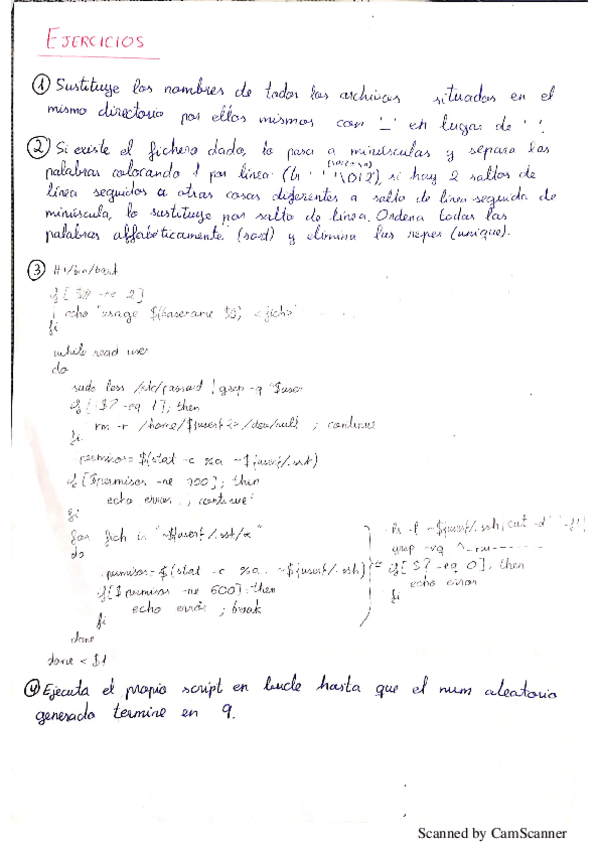 EJERCICIOS
① Sustituye los nombres de todos los archivos situados en el
mismo directorio por ellos mismos con '_' en lugar de ' '.
② Si existe el fichero dado, lo pasa a minúsculas y separa las
palabras colocando 1 por línea (tr ' ' '\012'), si hay 2 saltos de
línea seguidos u otras cosas diferentes a salto de línea seguida de
minúscula, lo sustituye por salto de línea. Ordena todas las
palabras alfabéticamente (sort) y elimina las repes (unique).
③ #!/bin/bash
if [ $# -ne 2]
echo "usage $(basename $0) <fich>"
fi
while read user
do
sudo less /etc/passwd | grep -q "$user
if [ $? -eq 1]; then
rm -r /home/${user} 2> /dev/null ; continue
fi
permisos=$(stat -c %a ~${user}/.ssh)
if [$permisos -ne 700]; then
echo error ; continue
fi
for fich in "~${user}/.ssh/*"
do
permisos=$(stat -c %a ~${user}/.ssh)
if [$permisos -ne 600]; then
echo error ; break
fi
done
done < $1
ls -l ~${user}/.ssh, cut -d' '
grep -vq ^-rw-------
= if [ $? -eq 0], then
echo error
fi
④ Ejecuta el propio script en bucle hasta que el num aleatorio
generado termine en 9.
Scanned by CamScanner